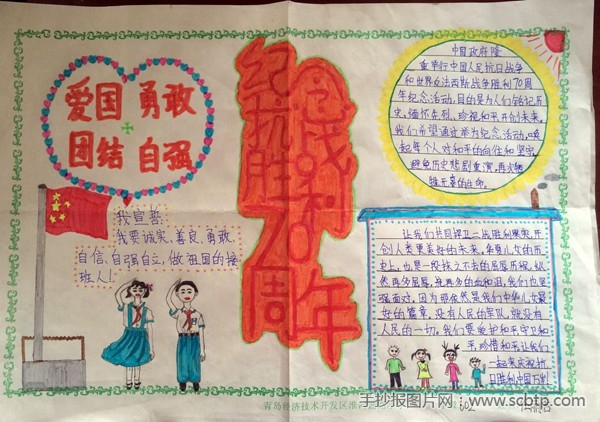 爱国 勇敢
团结 自强
纪念抗战胜利70周年
我宣誓:
我要诚实、善良、勇敢、
自信、自强自立,做祖国的接
班人!
中国政府隆
重举行中国人民抗日战争
和世界反法西斯战争胜利70周
年纪念活动,目的是为人们铭记历
史、缅怀先烈、珍视和平、开创未来。
我们希望通过举办纪念活动,唤
起每个人对和平的向往和坚守,
避免历史悲剧重演,再次
无辜的生命。
让我们共同捍卫二战胜利果实,开
创人类更美好的未来。华夏儿女的历
史上,也是一段挨之不去的屈辱历程,纵
然再多屈辱,
强面对,因为那依然是我们中华儿女最
好的篇章,没有人民的军队,就没有
人民的一切。我们要爱护和平守卫和
平,珍惜和平,让我们
一起来庆祝抗
日胜利中国万岁
青岛经济技术开发区淮
602
手抄报图片网:www.scbtp.com